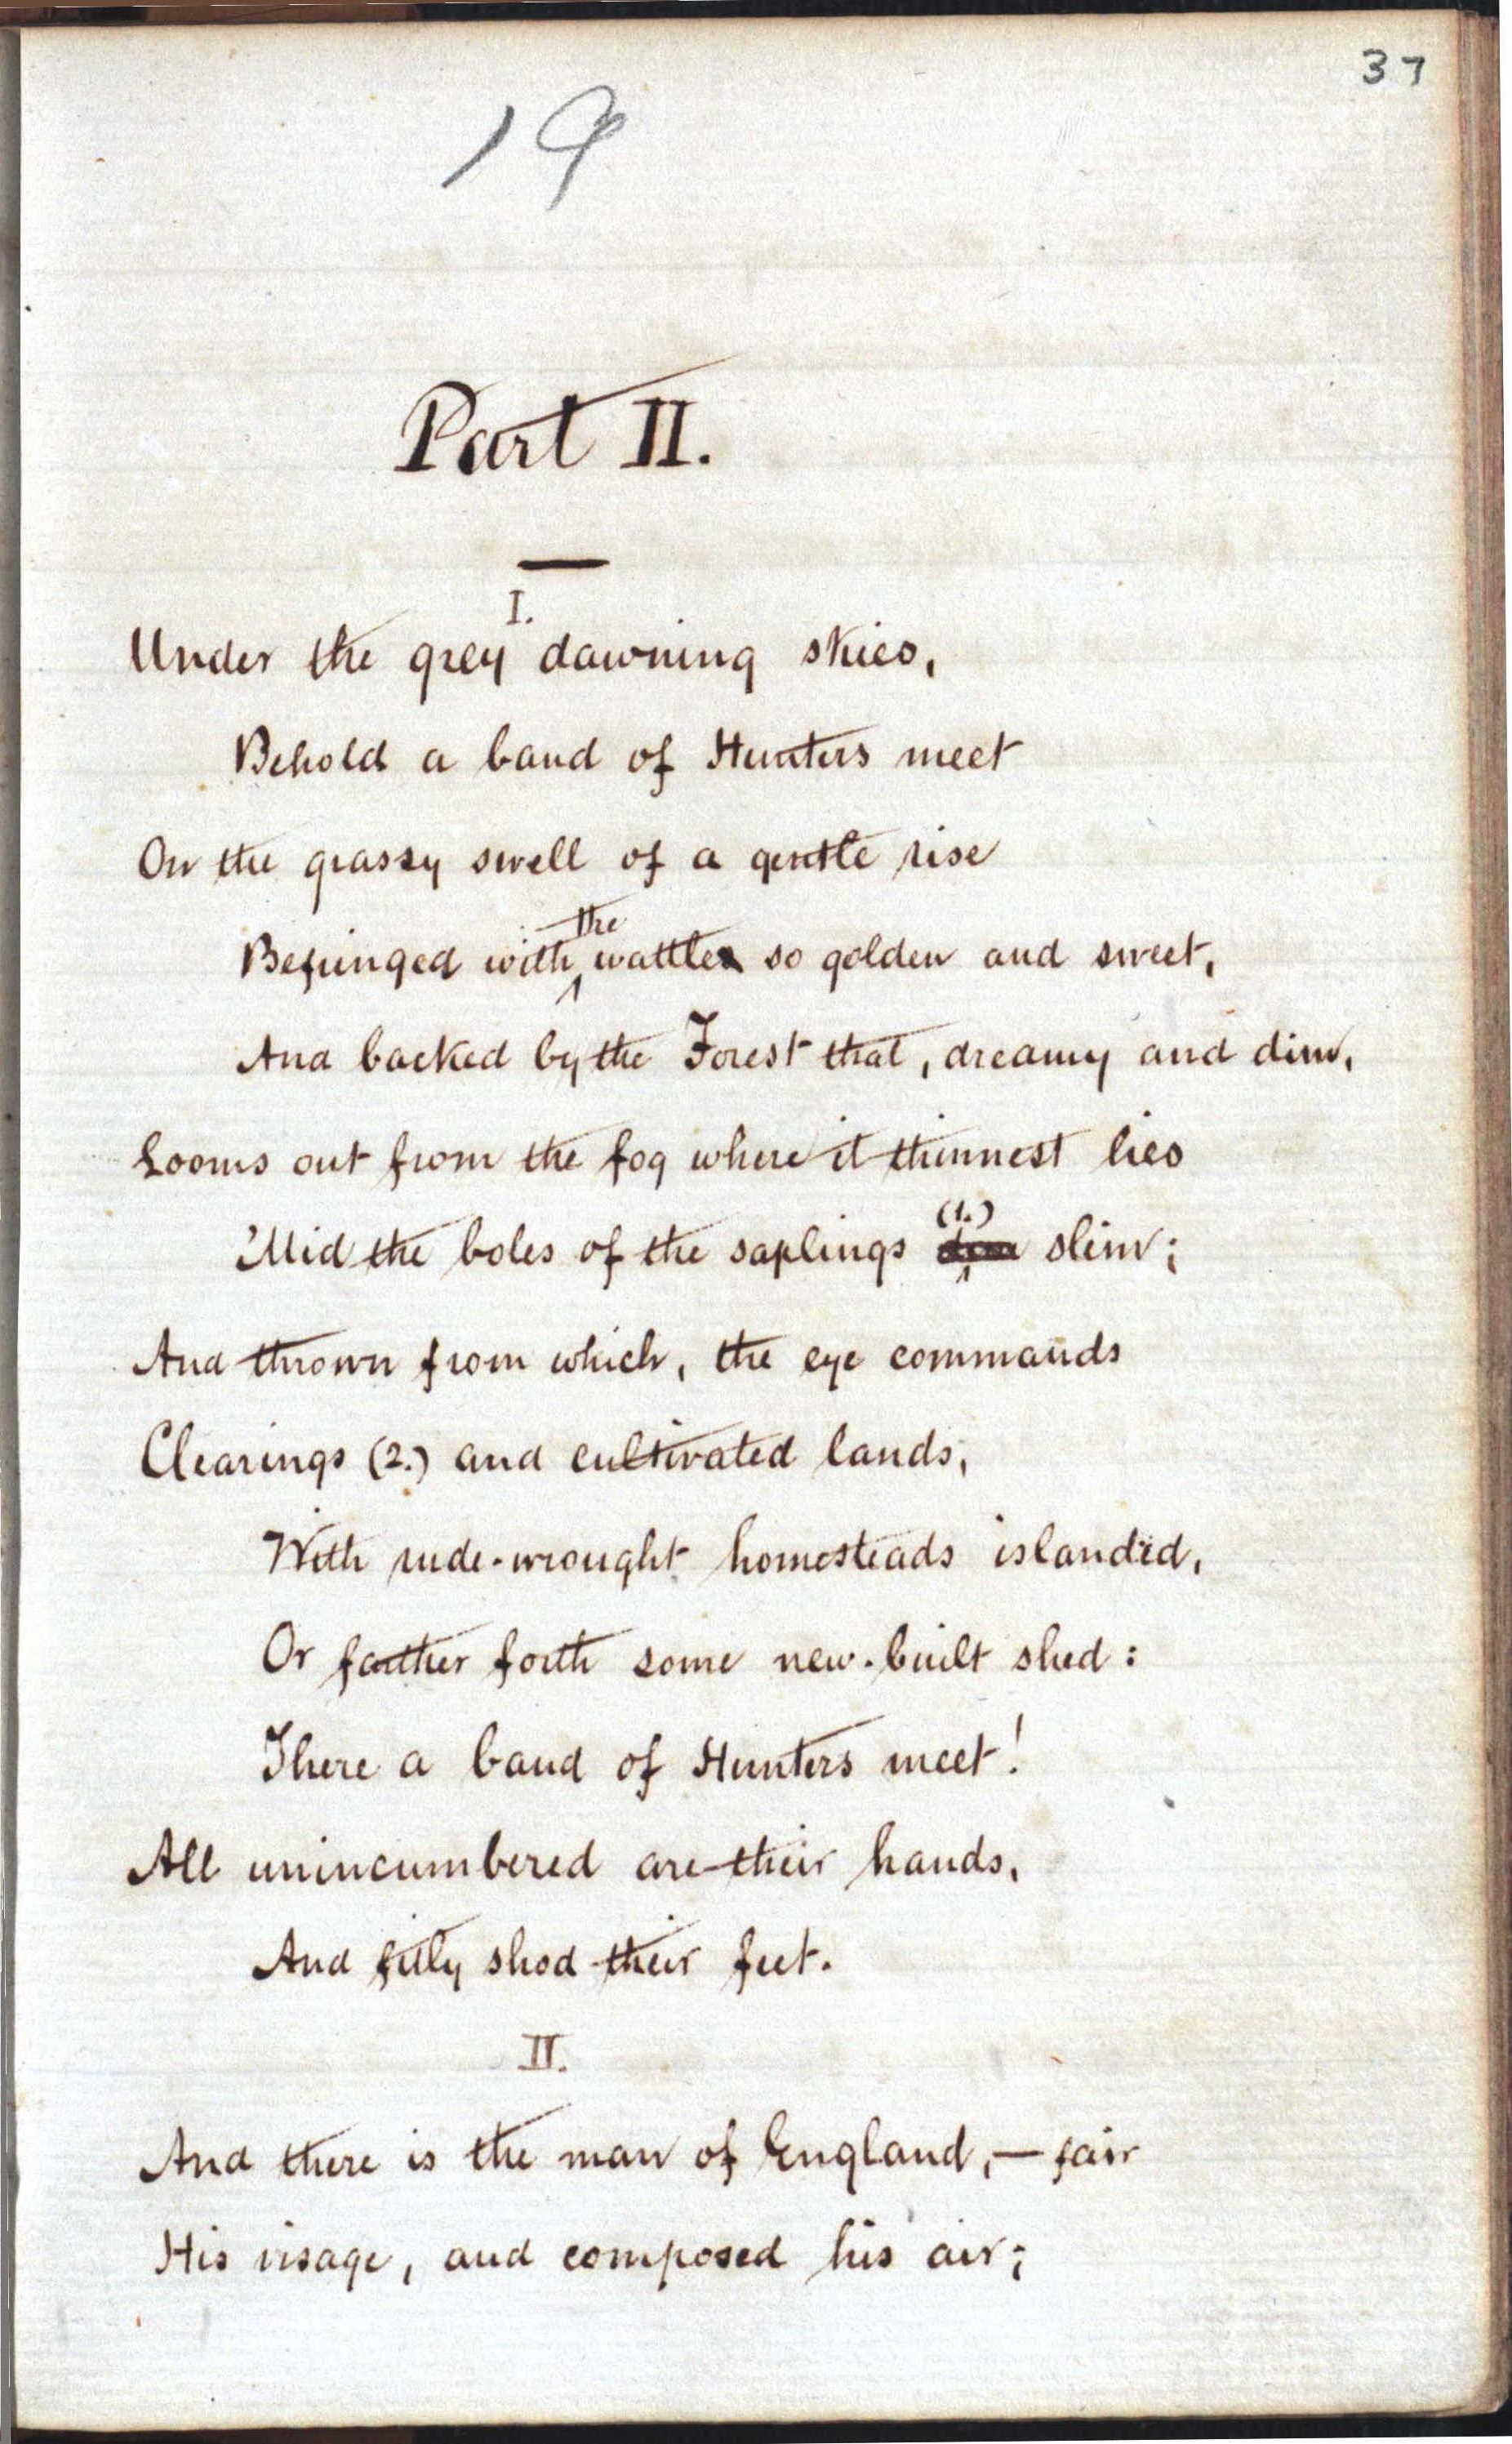 37
19
Part II.
I.
Under the grey dawning skies,
Behold a band of Hunters meet
On the grassy swell of a gentle rise
Befringed with the wattle so golden and sweet,
And backed by the Forest that, dreamy and dim,
Looms out from the fog where it thinnest lies
'Mid the boles of the saplings (1.) slim;
And thrown from which, the eye commands
Clearings (2.) and cultivated lands,
With rude-wrought homesteads islanded,
Or farther forth some new-built shed:
There a band of Hunters meet!
All unincumbered are their hands,
And fitly shod their feet.
II.
And there is the man of England,— fair
His visage, and composed his air;